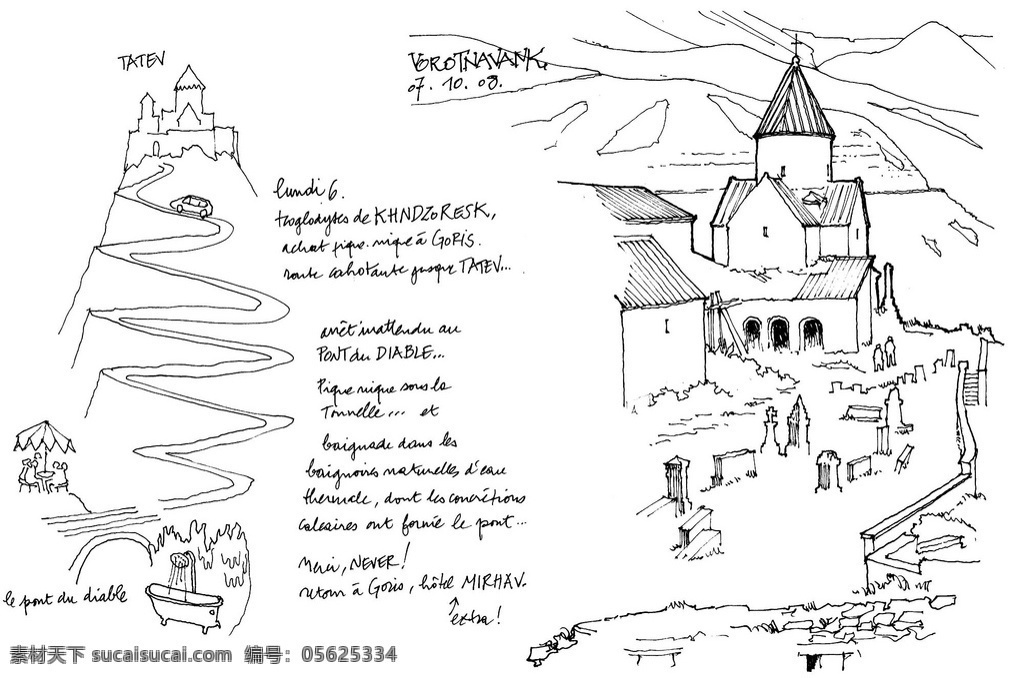 TATEV
VOROTNAVANK.
07. 10. 08.
lundi 6.
troglodytes de KHNDZORESK,
achat pique.nique à GORIS.
route cahotante jusque TATEV...
arrêt inattendu au
PONT du DIABLE...
Pique nique sous la
Tonnelle... et
baignade dans les
baignoires naturelles d'eau
thermale, dont les concrétions
calcaires ont formé le pont...
Merci, NEVER!
retour à Goris, hôtel MIRHAV.
extra!
le pont du diable
素材天下 sucaisucai.com 编号: 05625334